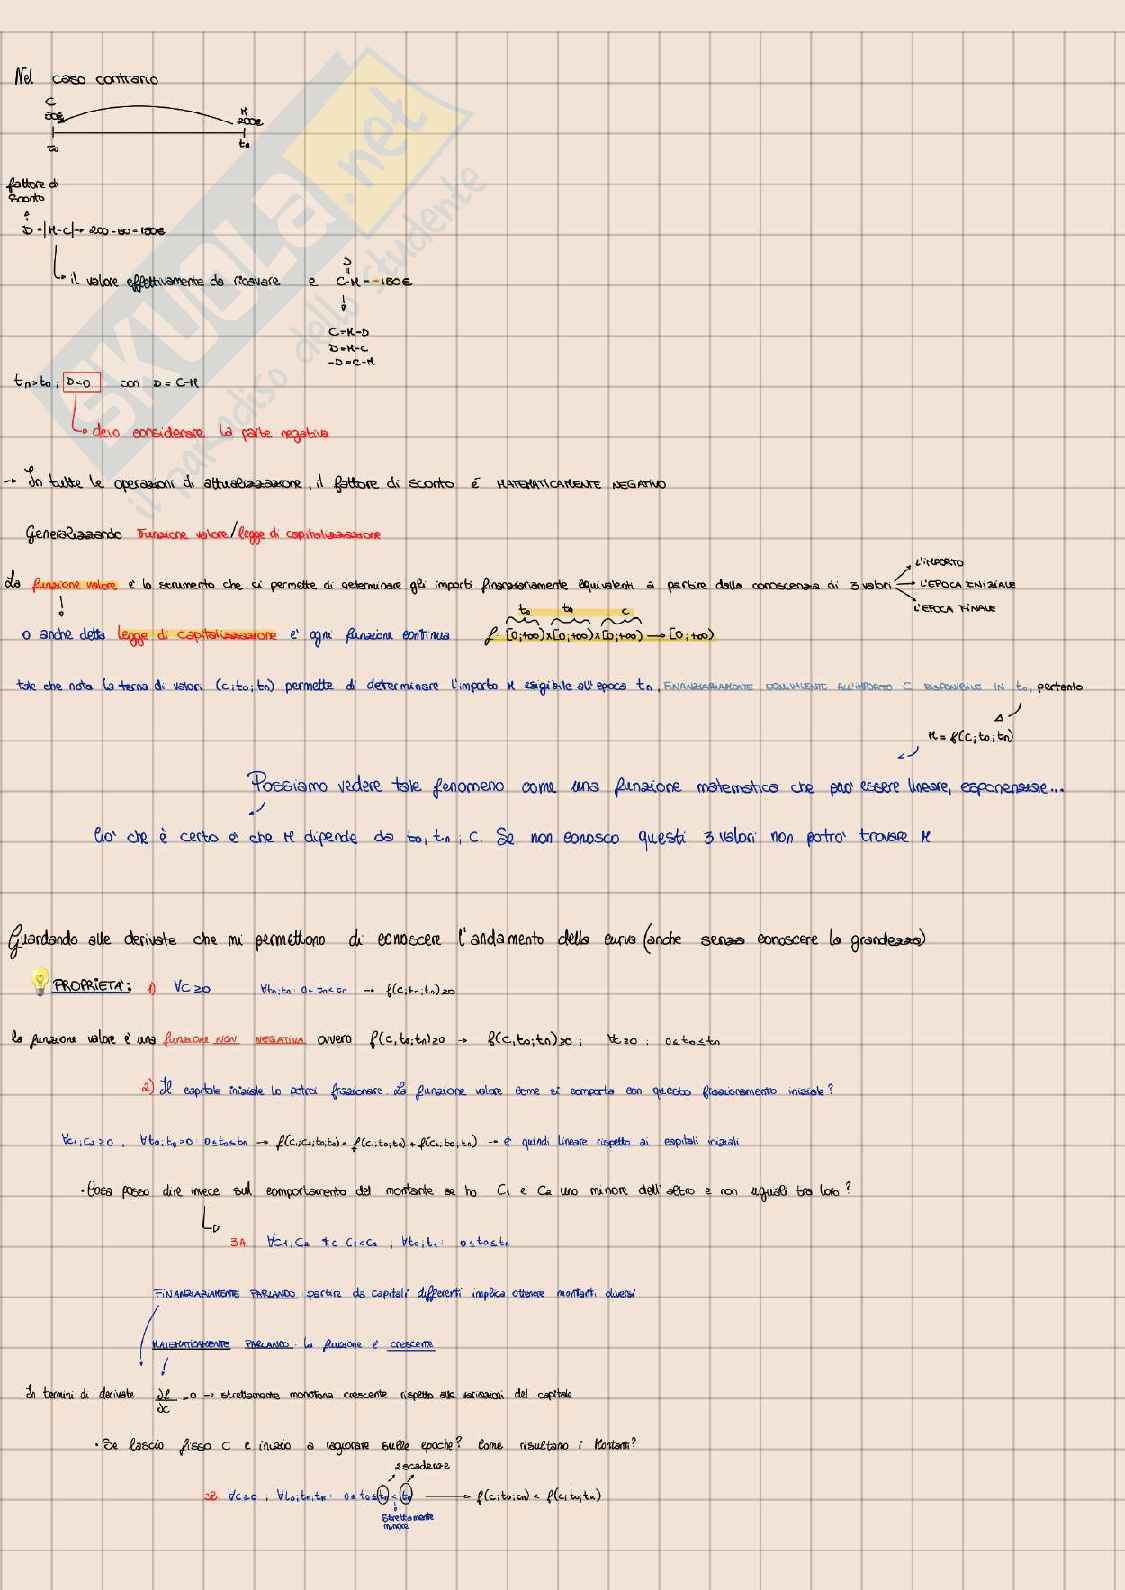 Nel caso contrario
C M
50€ 200€
t0 tn
fattore di
sconto
D = |M-C| → 200-50=150€
il valore effettivamente da ricavare è C-M = -150€
D
C=M-D
D=M-C
-D=C-M
tn>t0, D<0 con D = C-M
devo considerare la parte negativa
→ In tutte le operazioni di attualizzazione, il fattore di sconto è MATEMATICAMENTE NEGATIVO
Generalizzando Funzione valore/legge di capitalizzazione
L'IMPORTO
La funzione valore è lo strumento che ci permette di determinare gli importi finanziariamente equivalenti a partire dalla conoscenza di 3 valori L'EPOCA INIZIALE
L'EPOCA FINALE
t0 tn C
o anche detta legge di capitalizzazione è ogni funzione continua f: [0,+∞)x[0,+∞)x[0,+∞) → [0,+∞)
tale che nota la terna di valori (c;t0;tn) permette di determinare l'importo M esigibile all'epoca tn, FINANZIARIAMENTE EQUIVALENTE ALL'IMPORTO C DISPONIBILE IN t0, pertanto
M = f(c;t0;tn)
Possiamo vedere tale fenomeno come una funzione matematica che può essere lineare, esponenziale...
Ciò che è certo è che M dipende da t0, tn, C. Se non conosco questi 3 valori non potrò trovare M
Guardando alle derivate che mi permettono di conoscere l'andamento della curva (anche senza conoscere la grandezza)
PROPRIETA': 1) ∀C≥0 → f(c;t0;tn)≥0
la funzione valore è una funzione NON NEGATIVA ovvero f(c,t0;tn)≥0 → f(c,t0;tn)≥c; ∀c≥0; 0≤t0≤tn
2) Il capitale iniziale lo potrei frazionare. La funzione valore come si comporta con questo frazionamento iniziale?
∀c1,c2≥0, ∀t0;tn>0 0≤t0≤tn → è quindi lineare rispetto ai capitali iniziali
•Cosa posso dire invece sul comportamento del montante se ho C1 e C2 uno minore dell'altro e non uguali tra loro?
3A ∀C1,C2 tc C1<C2, ∀t0;tn: 0≤t0≤tn
FINANZIARIAMENTE PARLANDO partire da capitali differenti implica ottenere montanti diversi
MATEMATICAMENTE PARLANDO: la funzione è crescente
In termini di derivate ∂f/∂c >0 → strettamente monotona crescente rispetto alle variazioni del capitale
• Se lascio fisso C e inizio a ragionare sulle epoche? Come risultano i Montanti?
2 scadenze
Strettamente
minore